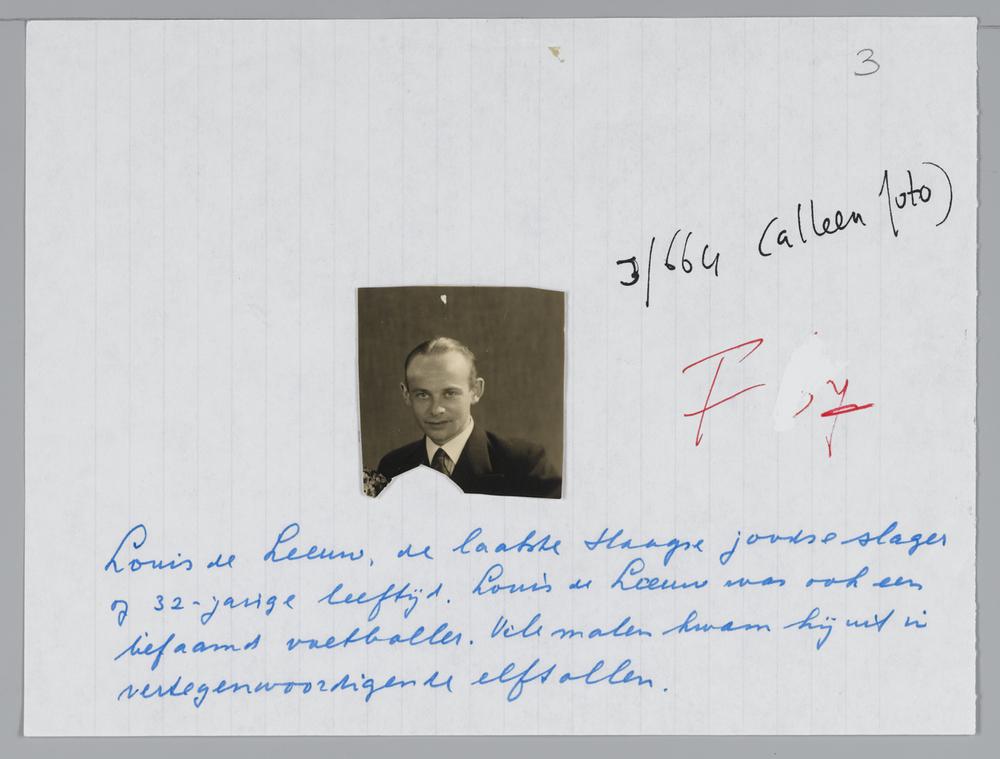 3
3/664 (alleen foto)
F
Louis de Leeuw, de laatste Haagse joodse slager
op 32-jarige leeftijd. Louis de Leeuw was ook een
befaamd voetballer. Vele malen kwam hij uit in
vertegenwoordigende elftallen.